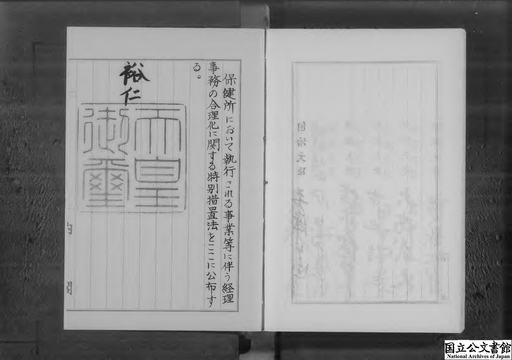 保健所において執行される事業等に伴う経理
事務の合理化に関する特別措置法をここに公布す
る。
裕仁
天皇
御璽
自治大臣
国立公文書館
National Archives of Japan